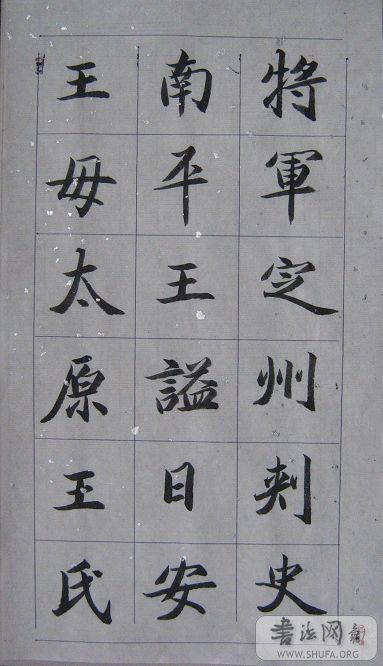 將軍定州刺史
南平王謚曰安
王母太原王氏
書法网
WWW.SHUFA.ORG